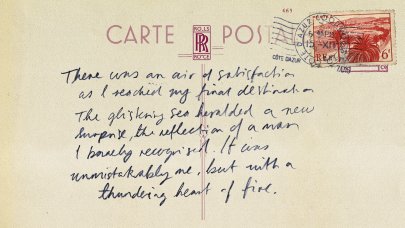 463
CARTE POSTALE
ROLLS
RR
ROYCE
CÔTE D'AZUR
6F
There was an air of satisfaction
as I reached my final destination
The glistening sea heralded a new
surprise, the reflection of a man
I barely recognised. It was
unmistakably me, but with a
thundering heart of fire.